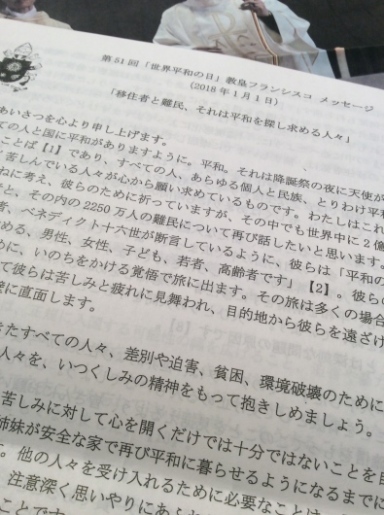 第51回「世界平和の日」教皇フランシスコ メッセージ
(2018年1月1日)
「移住者と難民、それは平和を探し求める人々」
あいさつを心より申し上げます。
ての人と国に平和がありますように。平和。それは降誕祭の夜に天使が
ことば【1】であり、すべての人、あらゆる個人と民族、とりわけ平和
苦しんでいる人々が心から願い求めているものです。わたしはこれ
ねに考え、彼らのために祈っていますが、その中でも世界中に2億
と、その内の2250万人の難民について再び話したいと思います。
者、ベネディクト十六世が断言しているように、彼らは「平和の
める、男性、女性、子ども、若者、高齢者です」【2】。彼らの
めに、いのちをかける覚悟で旅に出ます。その旅は多くの場合
て彼らは苦しみと疲れに見舞われ、目的地から彼らを遠ざけ
に直面します。
たすべての人々、差別や迫害、貧困、環境破壊のために
人々を、いつくしみの精神をもって抱きしめましょう。
苦しみに対して心を開くだけでは十分ではないことを自
姉妹が安全な家で再び平和に暮らせるようになるまでに
。他の人々を受け入れるために必要なことは
注意深く思いやりにあふ
ことです